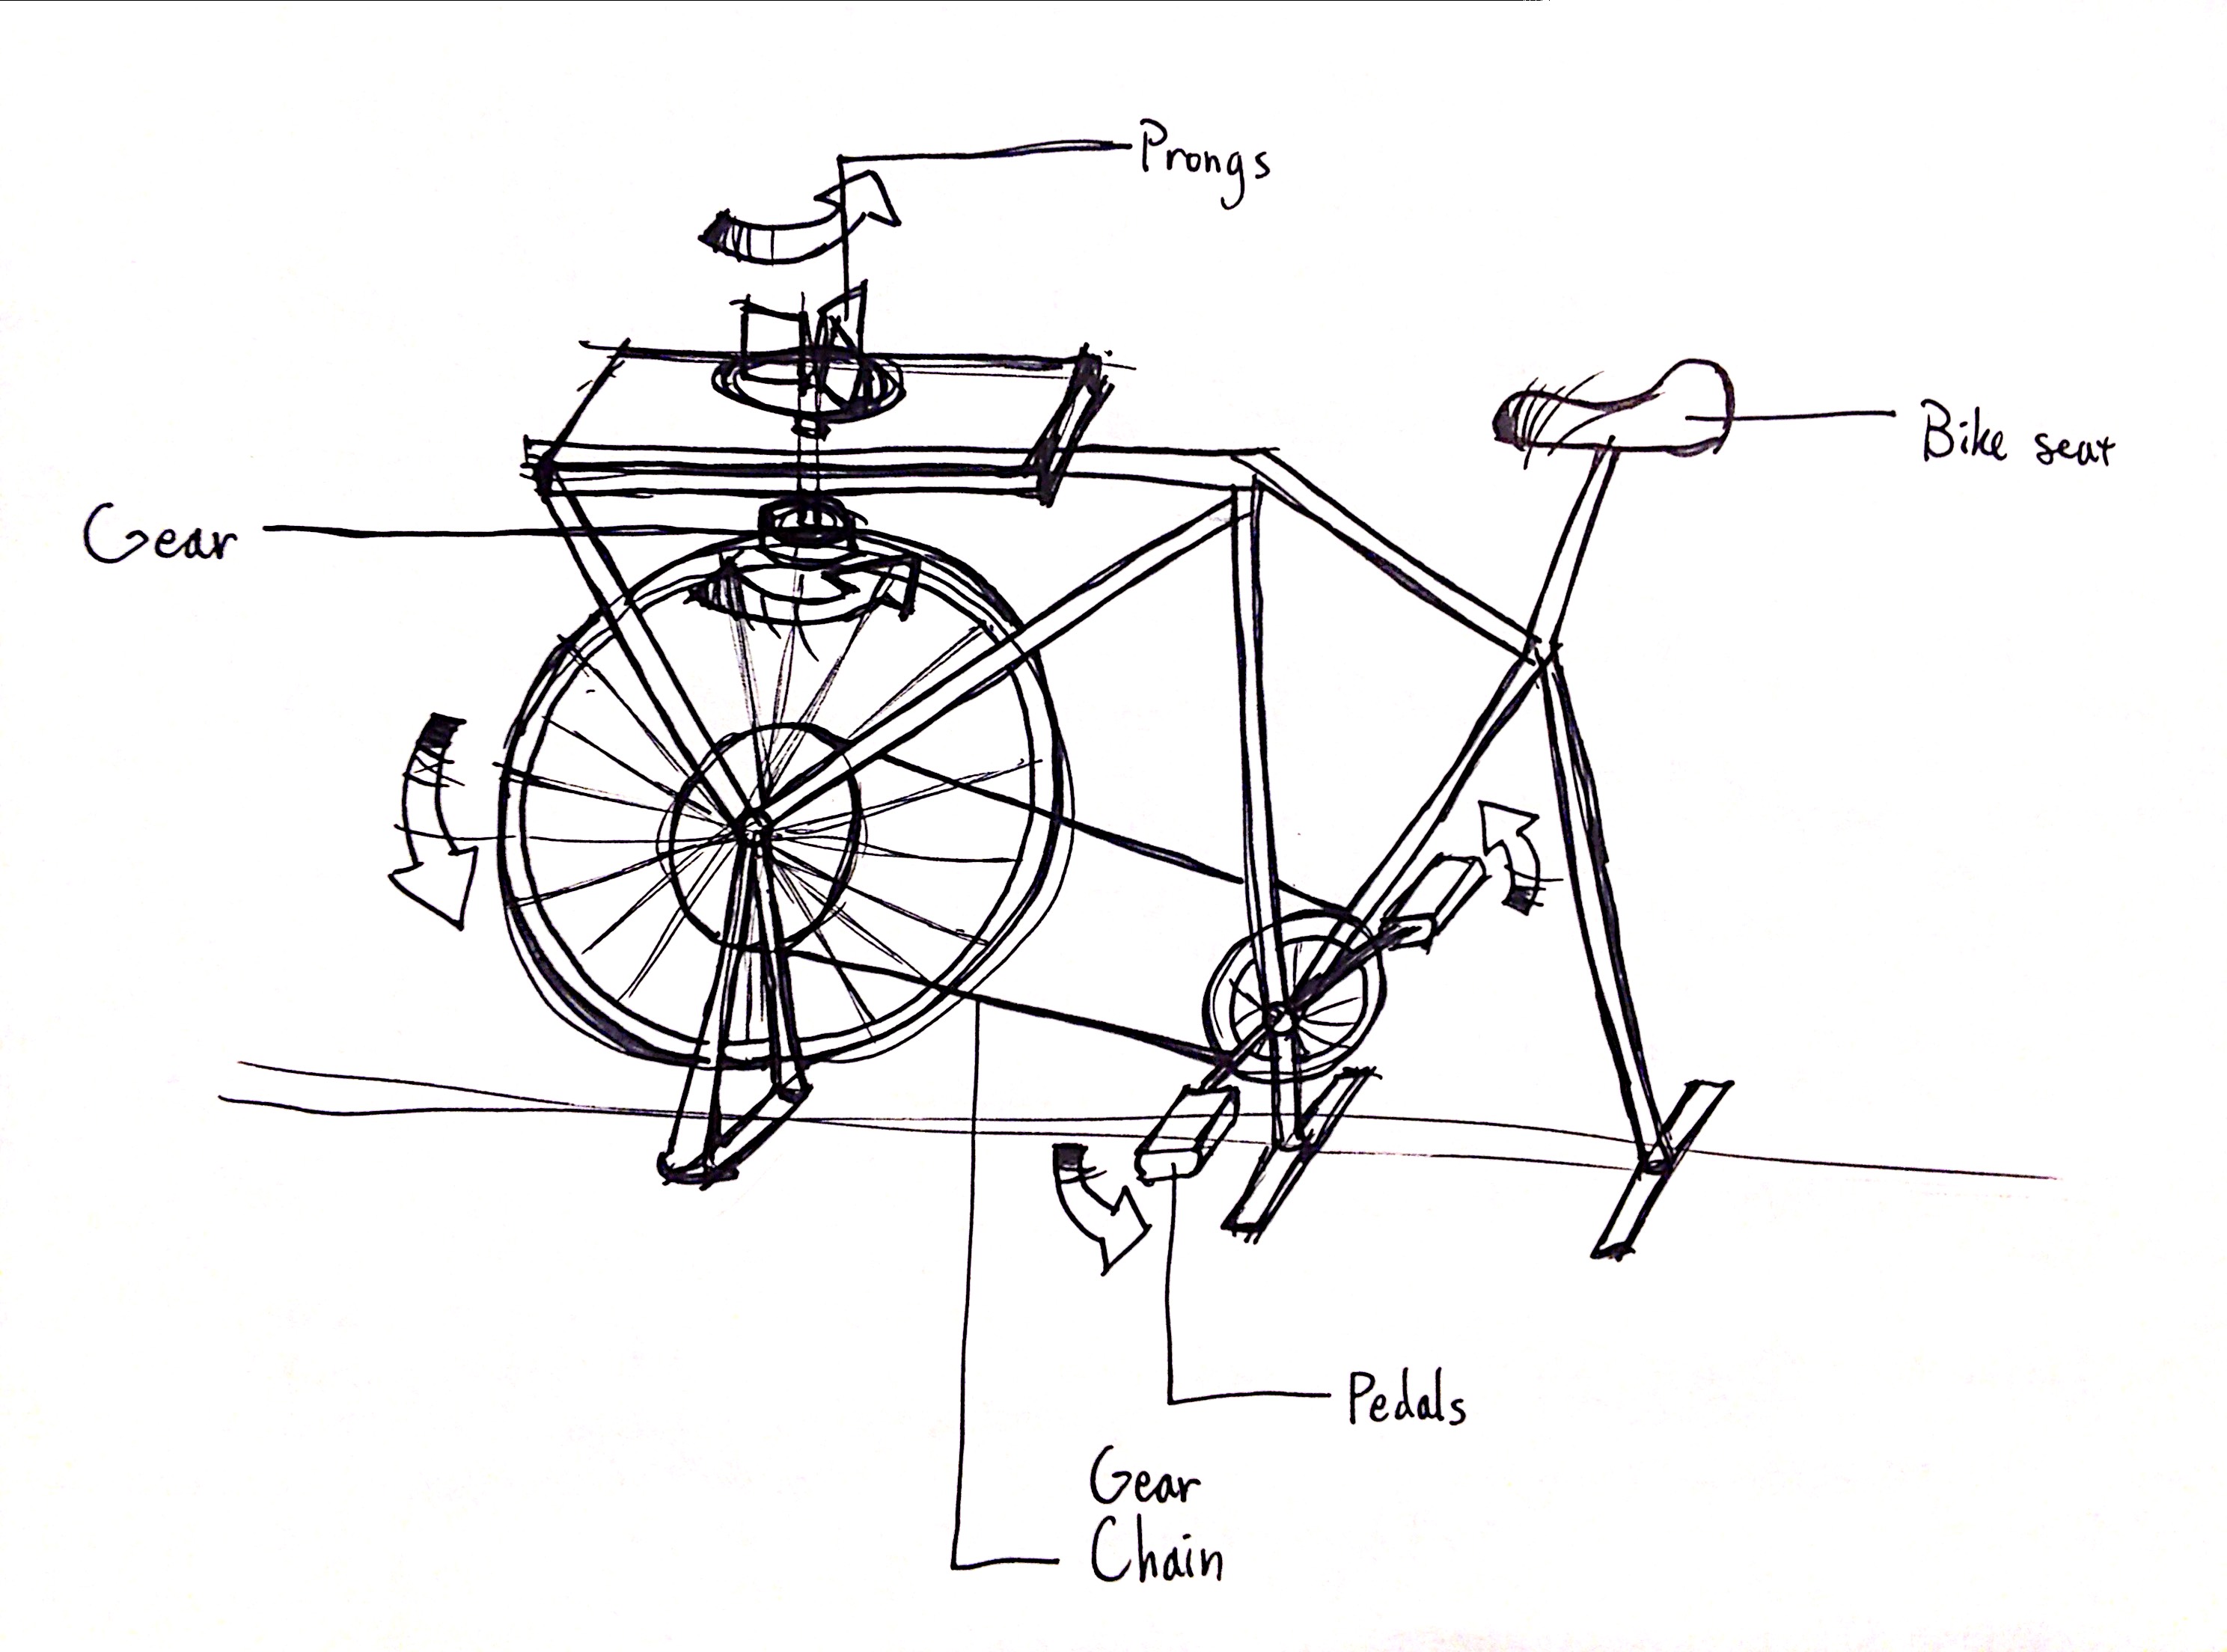 Prongs
Bike seat
Gear
Pedals
Gear
Chain